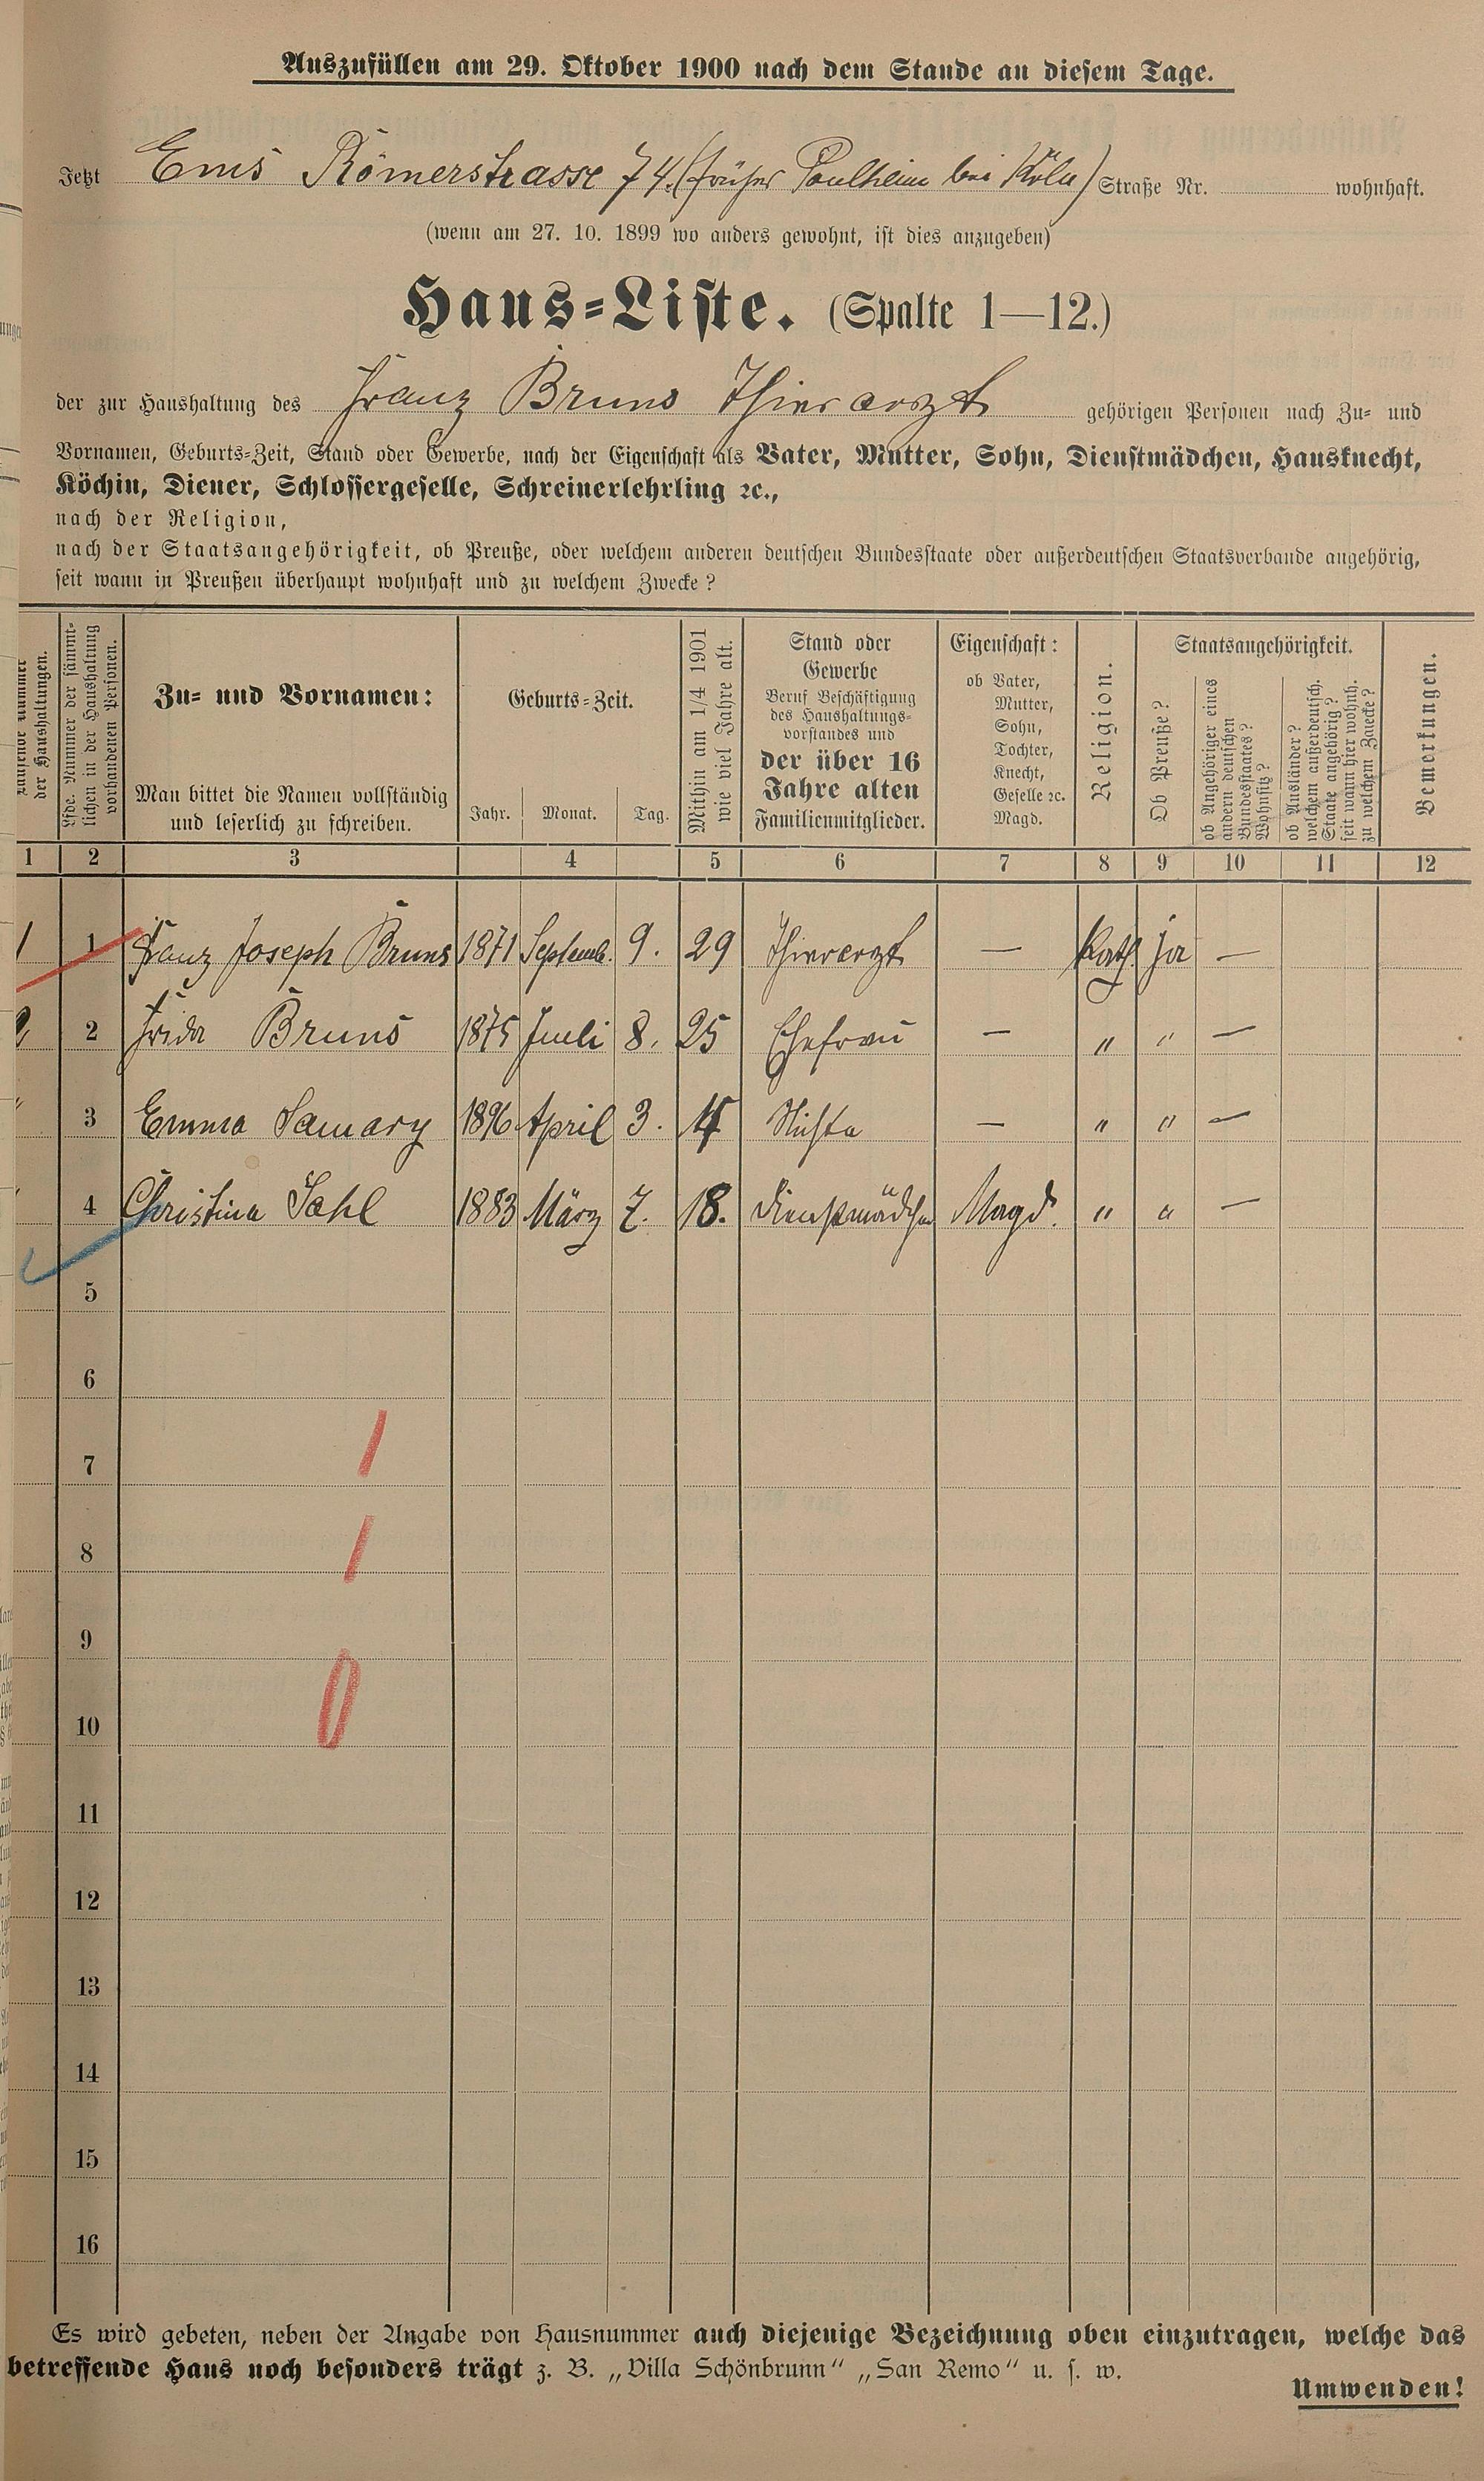 Auszufüllen am 29. Oktober 1900 nach dem Stande an diesem Tage.
Jetzt Ems Römerstrasse 74. (früher Poulheim bei Köln) Straße Nr. wohnhaft.
(wenn am 27. 10. 1899 wo anders gewohnt, ist dies anzugeben)
Haus-Liste. (Spalte 1—12.)
der zur Haushaltung des Franz Bruns Thierarzt gehörigen Personen nach Zu- und
Vornamen, Geburts-Zeit, Stand oder Gewerbe, nach der Eigenschaft als Vater, Mutter, Sohn, Dienstmädchen, Hausknecht,
Köchin, Diener, Schlossergeselle, Schreinerlehrling ꝛc.,
nach der Religion,
nach der Staatsangehörigkeit, ob Preuße, oder welchem anderen deutschen Bundesstaate oder außerdeutschen Staatsverbande angehörig,
seit wann in Preußen überhaupt wohnhaft und zu welchem Zwecke?
Nummer
der Haushaltungen.
Lfde. Nummer der sämmt-
lichen in der Haushaltung
vorhandenen Personen.
Zu- und Vornamen:
Man bittet die Namen vollständig
und leserlich zu schreiben.
Geburts-Zeit.
Jahr. Monat. Tag.
Mithin am 1/4 1901
wie viel Jahre alt.
Stand oder
Gewerbe
Beruf Beschäftigung
des Haushaltungs-
vorstandes und
der über 16
Jahre alten
Familienmitglieder.
Eigenschaft:
ob Vater,
Mutter,
Sohn,
Tochter,
Knecht,
Geselle ꝛc.
Magd.
Religion.
Staatsangehörigkeit.
Ob Preuße?
ob Angehöriger eines
andern deutschen
Bundesstaates?
Wohnsitz?
ob Ausländer?
welchem außerdeutsch.
Staate angehörig?
seit wann hier wohnh.
zu welchem Zwecke?
Bemerkungen.
1 2 3 4 5 6 7 8 9 10 11 12
1 1 Franz Joseph Bruns 1871 Septemb. 9. 29 Thierarzt — Kath. ja —
2 Frida Bruns 1875 Juli 8. 25 Ehefrau — " " —
" 3 Emma Samary 1896 April 3. 4 Nichte — " " —
" 4 Christina Sahl 1883 März 7. 18. Dienstmädchen Magd. " " —
5
6
7
8
9
10
11
12
13
14
15
16
Es wird gebeten, neben der Angabe von Hausnummer auch diejenige Bezeichnung oben einzutragen, welche das
betreffende Haus noch besonders trägt z. B. „Villa Schönbrunn“ „San Remo“ u. s. w.
Umwenden!